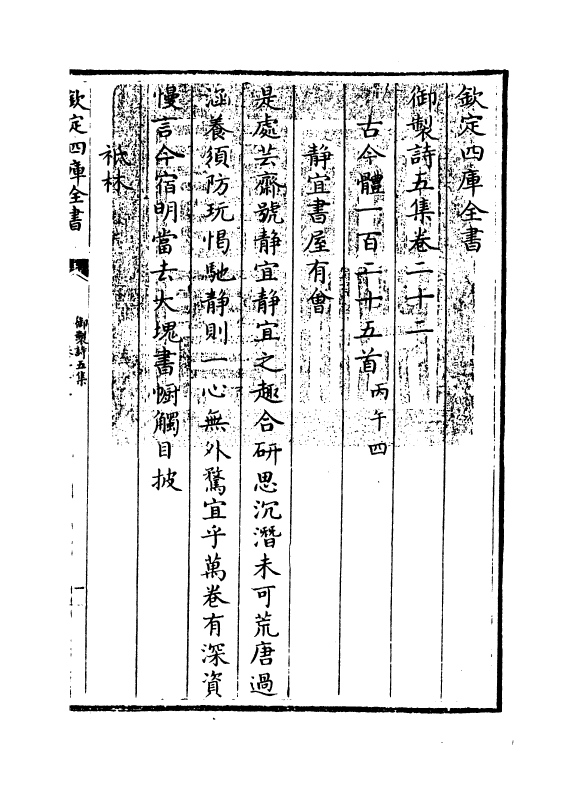 欽定四庫全書
御製詩五集卷二十二
古今體一百二十五首丙午四
靜宜書屋有會
是處芸齋號静宜静宜之趣合研思沉潛未可荒唐過
涵養須防玩愒馳静則一心無外騖宜乎萬卷有深資
慢言今宿明當去大塊書㡡觸目披
祇林
欽定四庫全書
御製詩五集
一